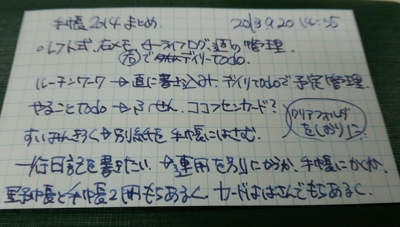 手帳2014まとめ 2013.9.20 14:55
○レフト式、右メモ 左ライフログ、週の管理。
右でデイリーTodo.
ルーチンワーク → 直に書き込み、デイリーTodoで予定管理。
やることTodo → ふせん、ココフセンカード?
クリアフォルダをしおりに
→別紙を手帳にはさむ。
一行日記を書きたい → 運用を別にするか、手帳にかくか。
野帳と手帳2冊もちあるく、カードははさんでもちあるく。